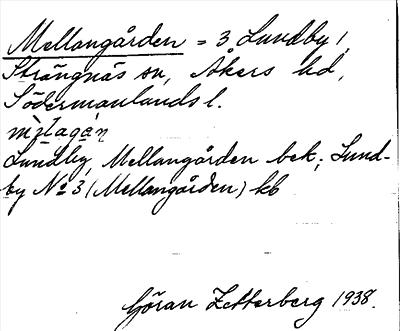 Mellangården = 3 Lundby /,
Strängnäs sn, Åkers hd,
Södermanlands l.
Lundby, Mellangården bek; Lund-
by No 3 (Mellangården) kb
Göran Zetterberg 1938.